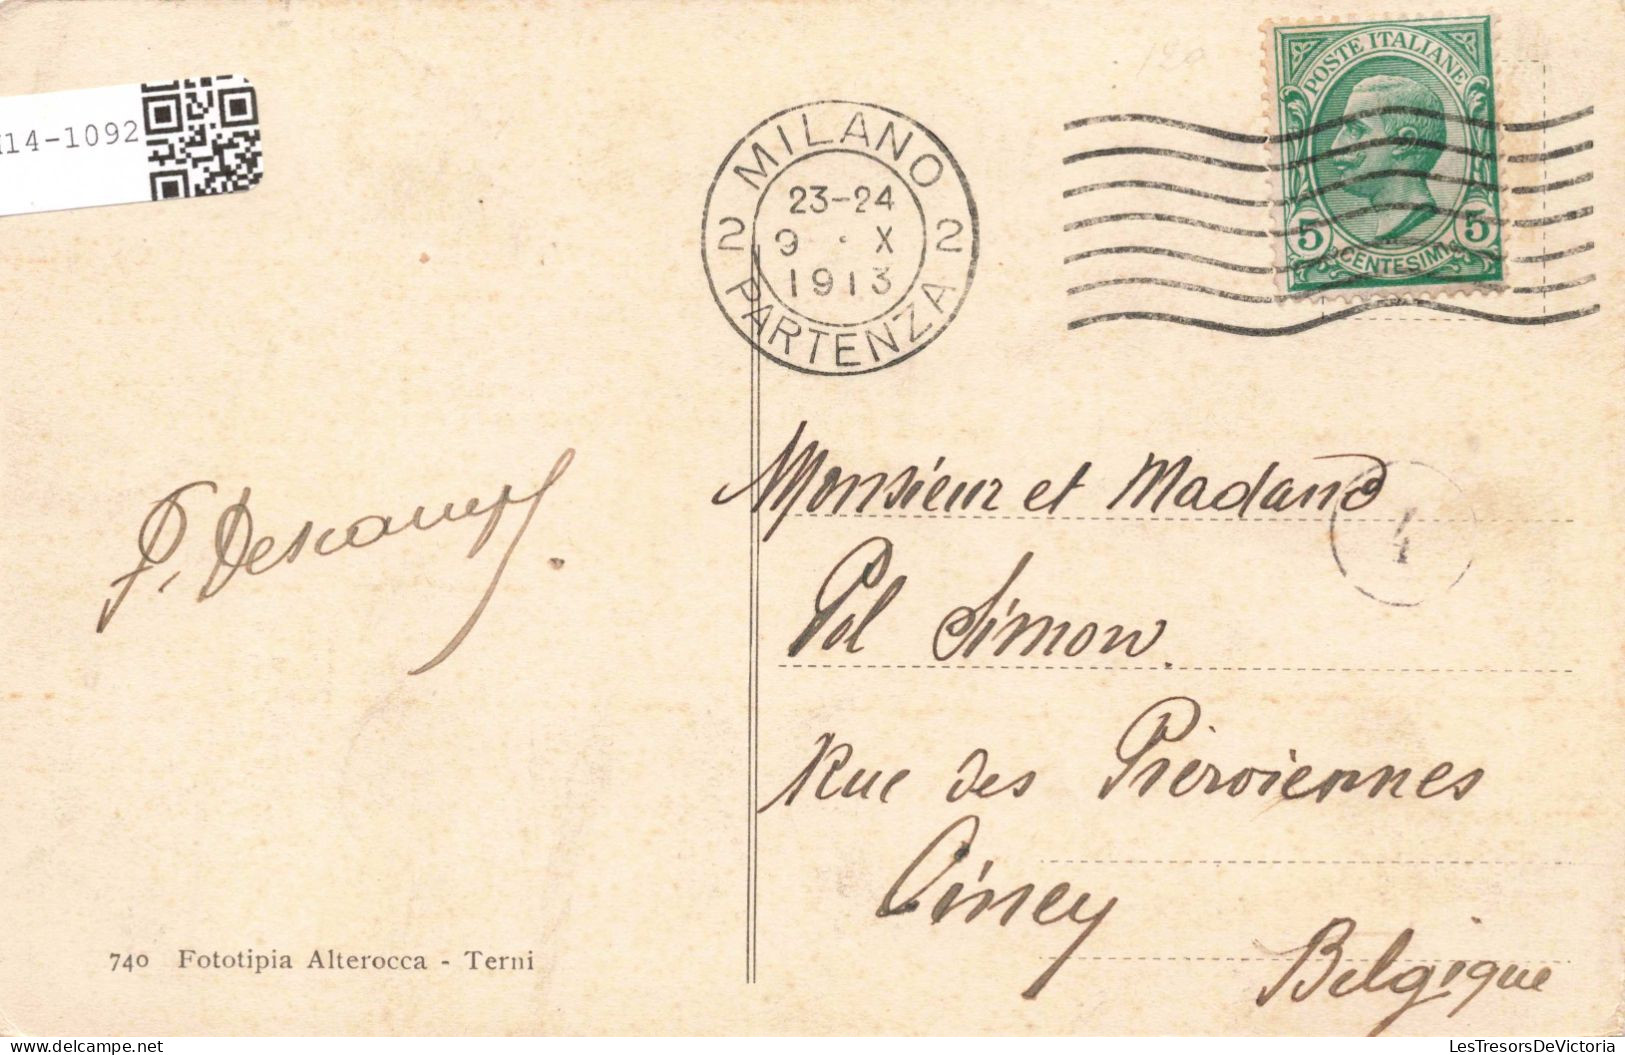 14-1092
MILANO
23-24
2 9 · X 2
1913
PARTENZA
POSTE ITALIANE
5 5
CENTESIMI
Monsieur et Madame
4
Pol Simon.
Rue des
Ciney
Belgique
P. Descamps.
740 Fototipia Alterocca - Terni
LesTresorsDeVictoria